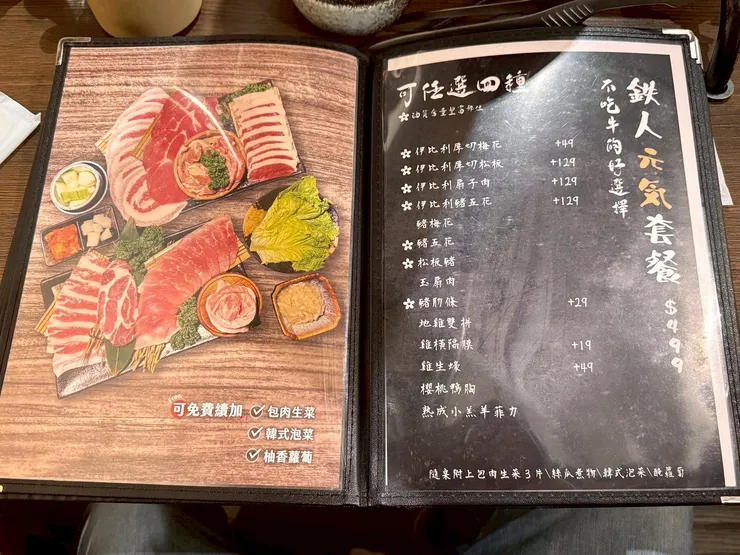 可免費續加
包肉生菜
韓式泡菜
柚香蘿蔔
鉄人元気套餐 $499
不吃牛的好選擇
可任選四種
伊比利厚切梅花 +49
伊比利厚切松板 +129
伊比利扇子肉 +129
伊比利豬五花 +129
豬梅花
豬五花
松板豬
玉扇肉
豬肋條 +29
地雞雙拼
雞橫隔膜 +19
雞生蠔 +49
櫻桃鴨胸
熟成小羔羊菲力
隨桌附上包肉生菜3片\絲瓜煮物\韓式泡菜\醃蘿蔔